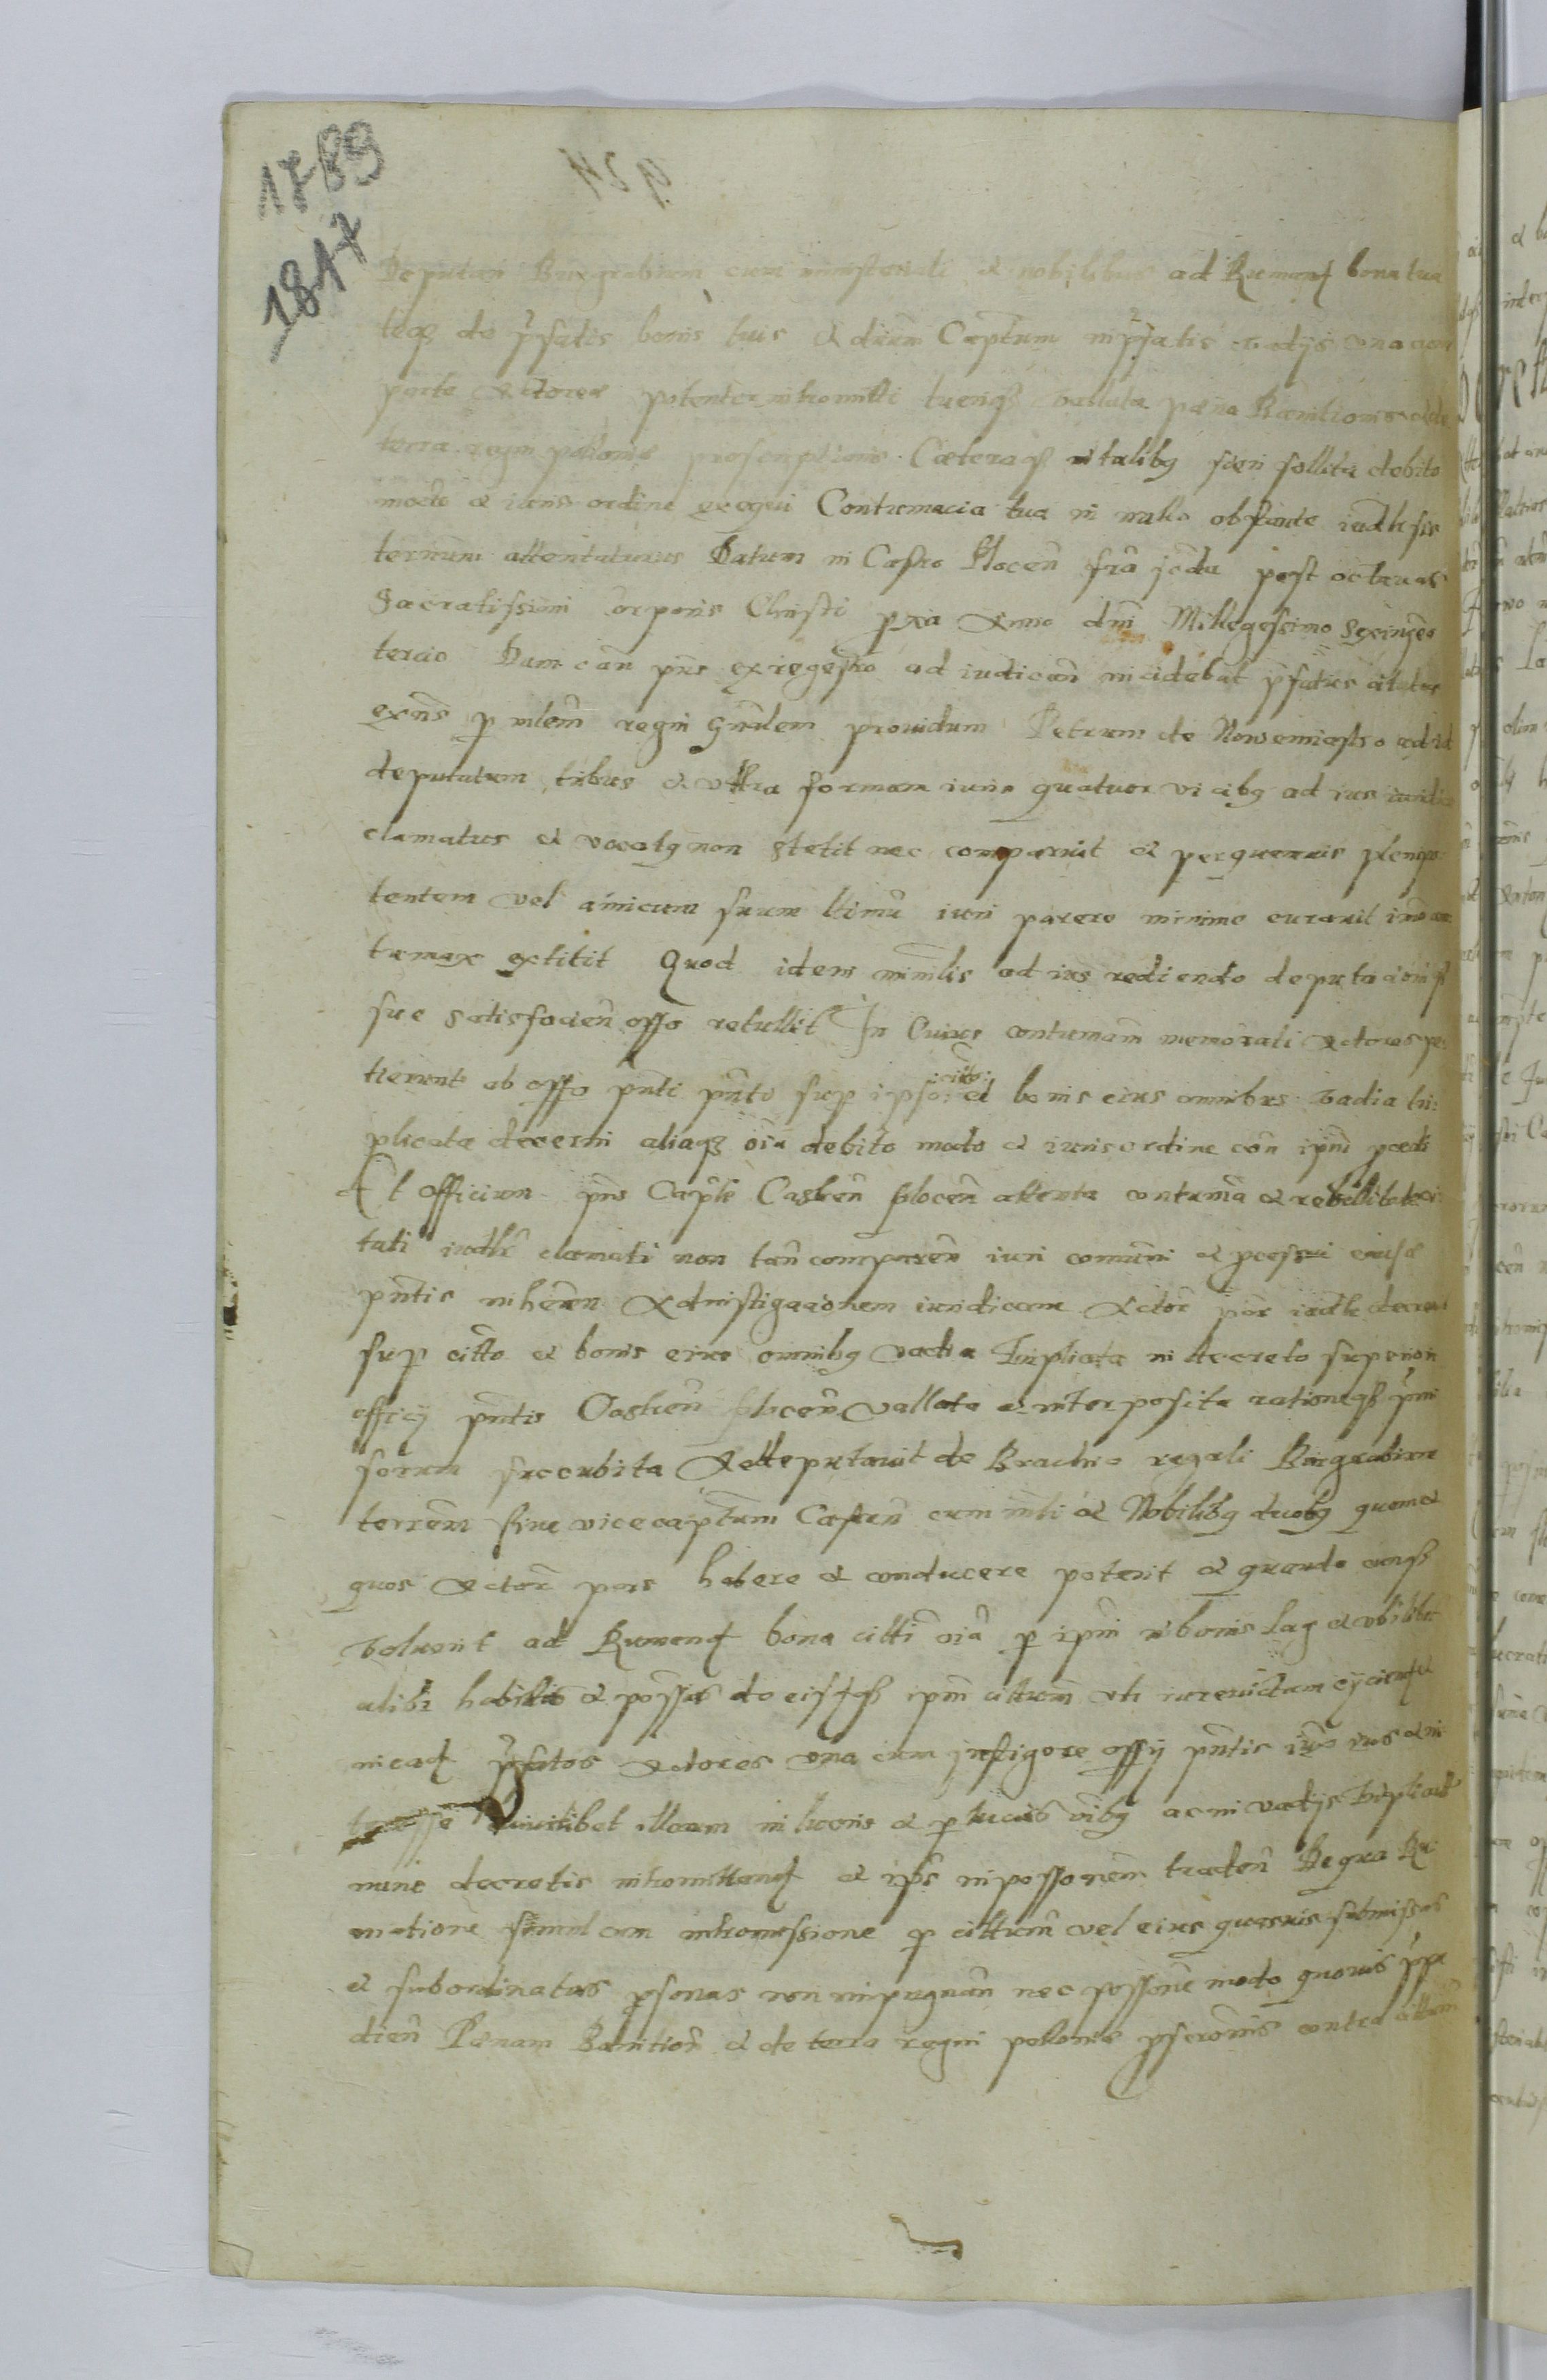 1789
1847
Deputari Burgrabium cum ministeriali et nobilibus ad Rumand bona tua
teq de pfatis bonis tuis et dictum Captum in pfatis vadijs una cum
parte Actorea potenter intromitti tuenq vallata pæna Bannitionis et de
terra regni poloniæ proscriptionis Cæteraq in talibg fieri sollita debito
modo et iuris ordine exequi Contumacia tua in nullo obstante iudlr sis
terminum attentaturus Datum in Castro Plocen fria scda post octavas
Sacratissimi Corporis Christi pxia Anno dni Millegesimo Sexingeo
tercio Dum can pns ex regestro ad iudicam incidebat pfatus citatus
exns p mlem regni Gnalem providum Petrum de Nowemiastro ad id
deputatum tribus et ultra formam iuris quatuor vicibg ad ius iudlr
clamatus et vocatg non stetit nec comparuit et per quemvis plenipo
tentem vel amicum suum ltimu iuri parere minime curavit imo con
tumax extitit Quod idem minlis ad ius rediendo deputacionis
sue satisfacien offo retullit In Cuius contumam memorati Actores pe
tierunt ab offo pnti pnto sup ipso :citto: et bonis eius omnibus vadia tri
plicata decerni aliaq oia debito modo et iuris ordine con ipm pcedi
Et Officium pns Caple Castren plocen attenta contuma et rebellitate ci
tati iudlr clamati non tan comparen iuri comuni et pcessui eiusd
pntis inheren Ad instigationem iuridicam Actor par iudlr decrevit
sup citto et bonis eius omnibg vadia Triplicata in decreto superiori
officij pntis Castren plocen vallata et interposita rationeq pmi
sorum succubita Ac deputavit de Brachio regali Burgrabium
terrem sive vicecaptum Castren cum mli et Nobilibg duobg quem et
quos Actor pars habere et conducere poterit et quando eousq
voluerit ad Rumand bona citti oia p ipm in bonis Lag et ubilibet
alibi habita et possessa de eisdq ipm cittum uti iurevictum eijciend et
in eadq pfatos Actores una cum instigatore offij pntis iuxo ius et in
teresse Cuiuslibet illorum in lucris et p lucris oibg ac in vadijs Triplicatis
nunc decretis intromittend et ips in possonem traden De qua Ru
matione simul cum intromissione p cittum vel eius quasvis submissas
et subordinatas psonas non impugnan nec possone modo quovis impe
dien Pænam Bannition et de terra regni polonie pscronis contra cittum